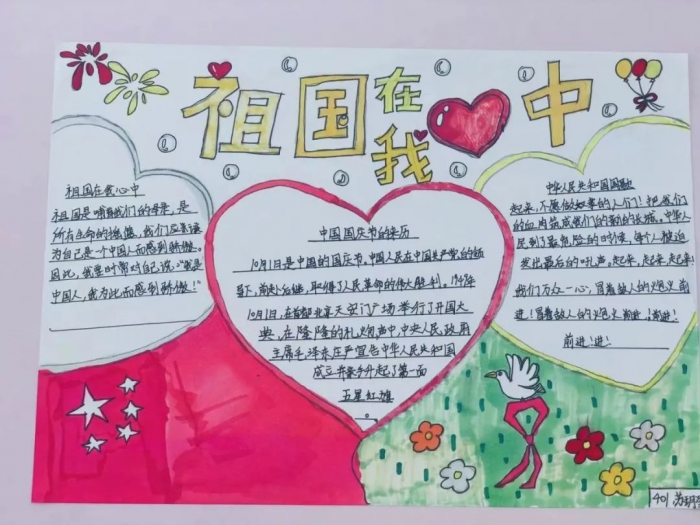 祖国在我中
祖国在我心中
祖国是哺育我们的母亲，是
所有生命的摇篮，我们应当
为自己是一个中国人而感到骄傲。
因此，我要时常对自己说："我是
中国人，我为此而感到骄傲！"
中国国庆节的来历
10月1日是中国的国庆节。中国人民在中国共产党的领
导下，前赴后继，取得了人民革命的伟大胜利。1949年
10月1日，在首都北京天安门广场举行了开国大
典，在隆隆的礼炮声中，中央人民政府
主席毛泽东庄严宣告中华人民共和国
成立并亲手升起了第一面
五星红旗
。
中华人民共和国国歌
起来，不愿做奴隶的人们！把我们
的血肉筑成我们的新的长城。中华
民到了最危险的时候，每个人被迫
发出最后的吼声。起来，起来，起来！
我们万众一心，冒着敌人的炮火前
进！冒着敌人的炮火前进！前进！
前进！进！
401 苏玥